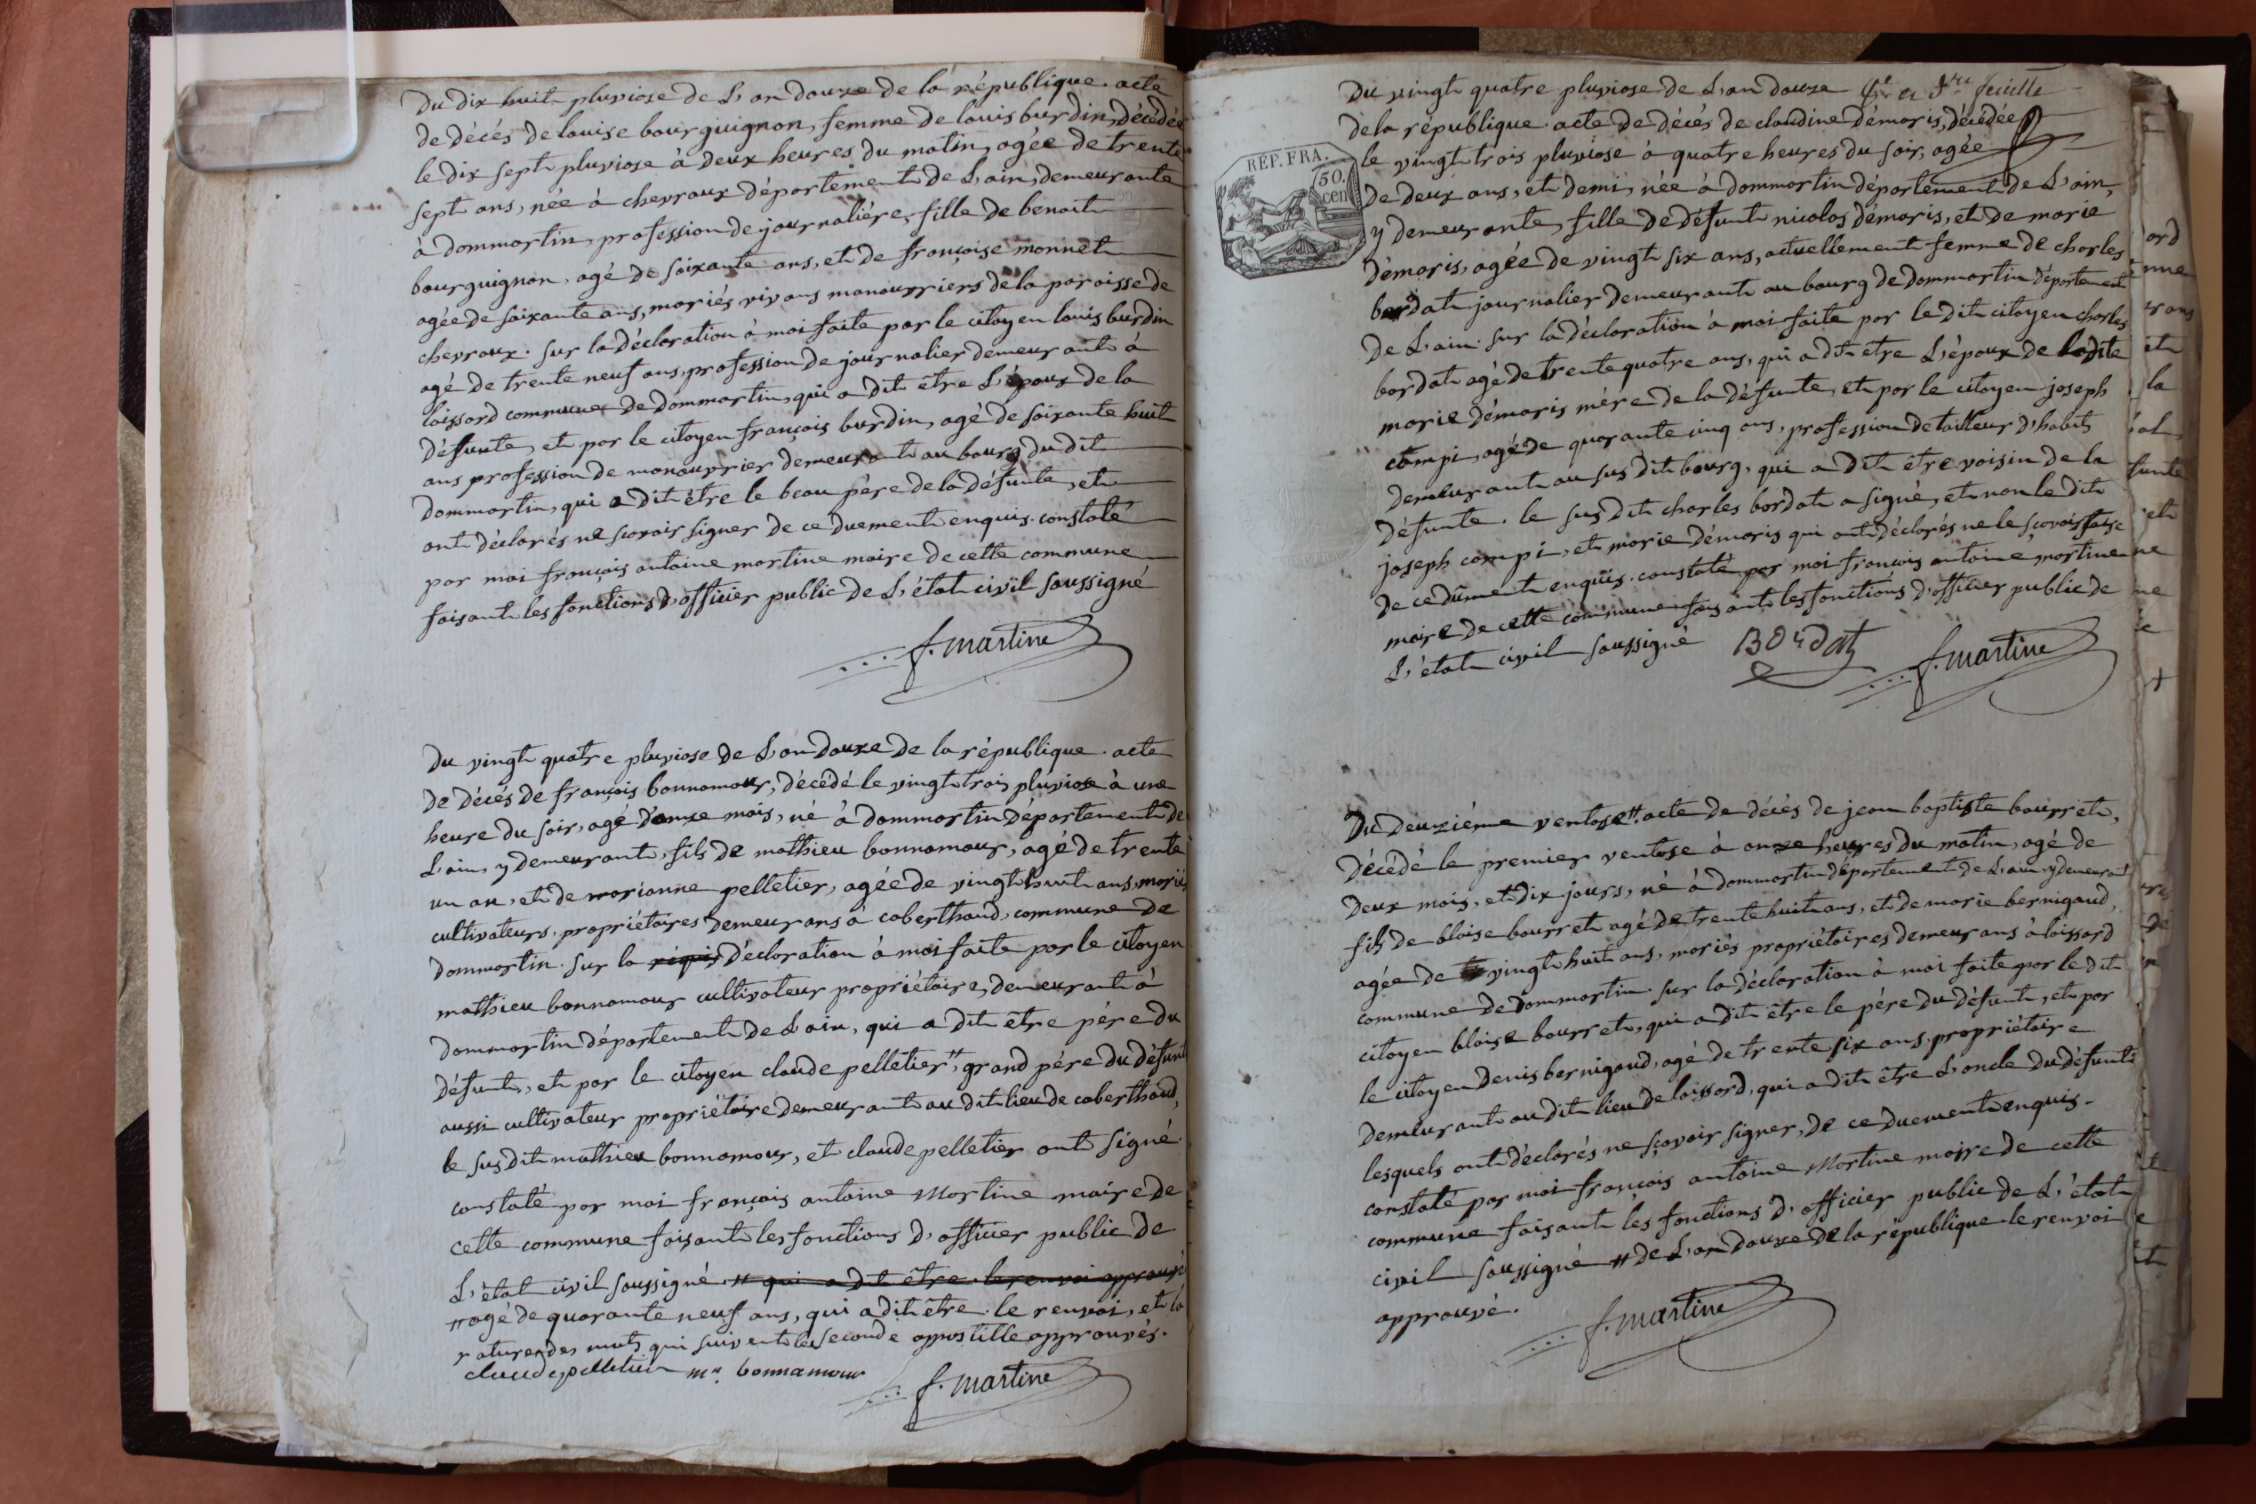 Du dix huit pluviose de L'an douze de la république. acte
de décés de louise bourguignon, femme de louis burdin, décédée
le dix sept pluviose à deux heures du matin, agée de trente
sept ans, née à chevroux département de L'ain, demeurante
à dommartin, profession de journaliére, fille de benoit
bourguignon, agé de soixante ans, et de françoise monnet
agée de soixante ans, mariés vivans manouvriers de la paroisse de
chevroux. sur la déclaration à moi faite par le citoyen louis burdin
agé de trente neuf ans, profession de journalier demeurant à
loissard commune de dommartin, qui a dit être L'époux de la
défunte, et par le citoyen françois burdin, agé de soixante huit
ans profession de manouvrier demeurant au bourg du dit
dommartin, qui a dit être le beau père de la défunte, et
ont déclarés ne sçavoir signer de ce duement enquis. constaté
par moi françois antoine martine maire de cette commune
faisant les fonctions d'officier public de L'état civil soussigné
f. martine
Du vingt quatre pluviose de L'an douze de la république. acte
de décés de françois bonnamour, décédé le vingt trois pluviose à une
heure du soir, agé d'onze mois, né à dommartin département de
L'ain, y demeurant, fils de mathieu bonnamour, agé de trente
un an, et de marianne pelletier, agée de vingt huit ans, mariés
cultivateurs propriétaires demeurans à coberthoud, commune de
dommartin. sur la déclaration à moi faite par le citoyen
mathieu bonnamour cultivateur propriétaire, demeurant à
dommartin département de L'ain, qui a dit être père du
défunt, et par le citoyen claude pelletier, # grand père du défunt
aussi cultivateur propriétaire demeurant au dit lieu de coberthoud,
le sus dit mathieu bonnamour, et claude pelletier ont signé.
constaté par moi françois antoine Martine maire de
cette commune faisant les fonctions d'officier public de
L'état civil soussigné. # qui a dit être. le renvoi approuvé
# agé de quarante neuf ans, qui a dit être. le renvoi, et la
rature des mots qui suivent la seconde apostille approuvés.
claude pelletier m. bonnamour
f. martine
Du vingt quatre pluviose de L'an douze feuille
de la république. acte de décés de claudine démaris, décédée
le vingt trois pluviose à quatre heures du soir, agée
REP. FRA.
50.
cen
de deux ans, et demi, née à dommartin département de L'ain,
y demeurante, fille de défunt nicolas démaris, et de marie
démaris, agée de vingt six ans, actuellement femme de charles
bordat journalier demeurant au bourg de dommartin département
de L'ain. sur la déclaration à moi faite par le dit citoyen charles
bordat agé de trente quatre ans, qui a dit être L'époux de ladite
marie démaris mére de la défunte, et par le citoyen joseph
compi, agé de quarante cinq ans, profession de tailleur d'habits
demeurant au sus dit bourg, qui a dit être voisin de la
défunte. le sus dit charles bordat a signé, et non le dit
joseph compi, et marie démaris qui ont déclarés ne le sçavoir faire
de ce dûment enquis. constaté par moi françois antoine martine
maire de cette commune faisant les fonctions d'officier public de
L'état civil soussigné Bordat f. martine
Du deuxiéme ventose #. acte de décés de jean baptiste bourret,
décédé le premier ventose à onze heures du matin, agé de
deux mois, et dix jours, né à dommartin département de L'ain, y demeurant
fils de blaise bourret agé de trente huit ans, et de marie bernigaud,
agée de vingt huit ans, mariés propriétaires demeurans à loissard
commune de dommartin. sur la déclaration à moi faite par le dit
citoyen blaise bourret, qui a dit être le père du défunt, et par
le citoyen denis bernigaud, agé de trente six ans, propriétaire
demeurant au dit lieu de loissard, qui a dit être L'oncle du défunt
lesquels ont déclarés ne sçavoir signer, de ce duement enquis.
constaté par moi françois antoine Martine maire de cette
commune faisant les fonctions d'officier public de L'état
civil soussigné # de L'an douze de la république. le renvoi
approuvé. f. martine